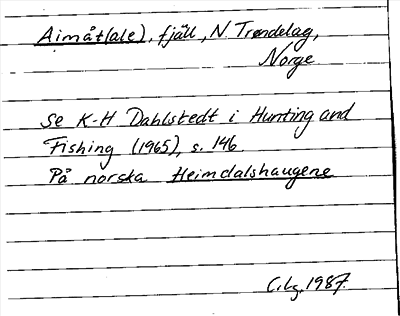 Aimåt(ale), fjäll, N Trøndelag,
Norge
Se K-H Dahlstedt i Hunting and
Fishing (1965), s. 146
På norska Heimdalshaugene
1987